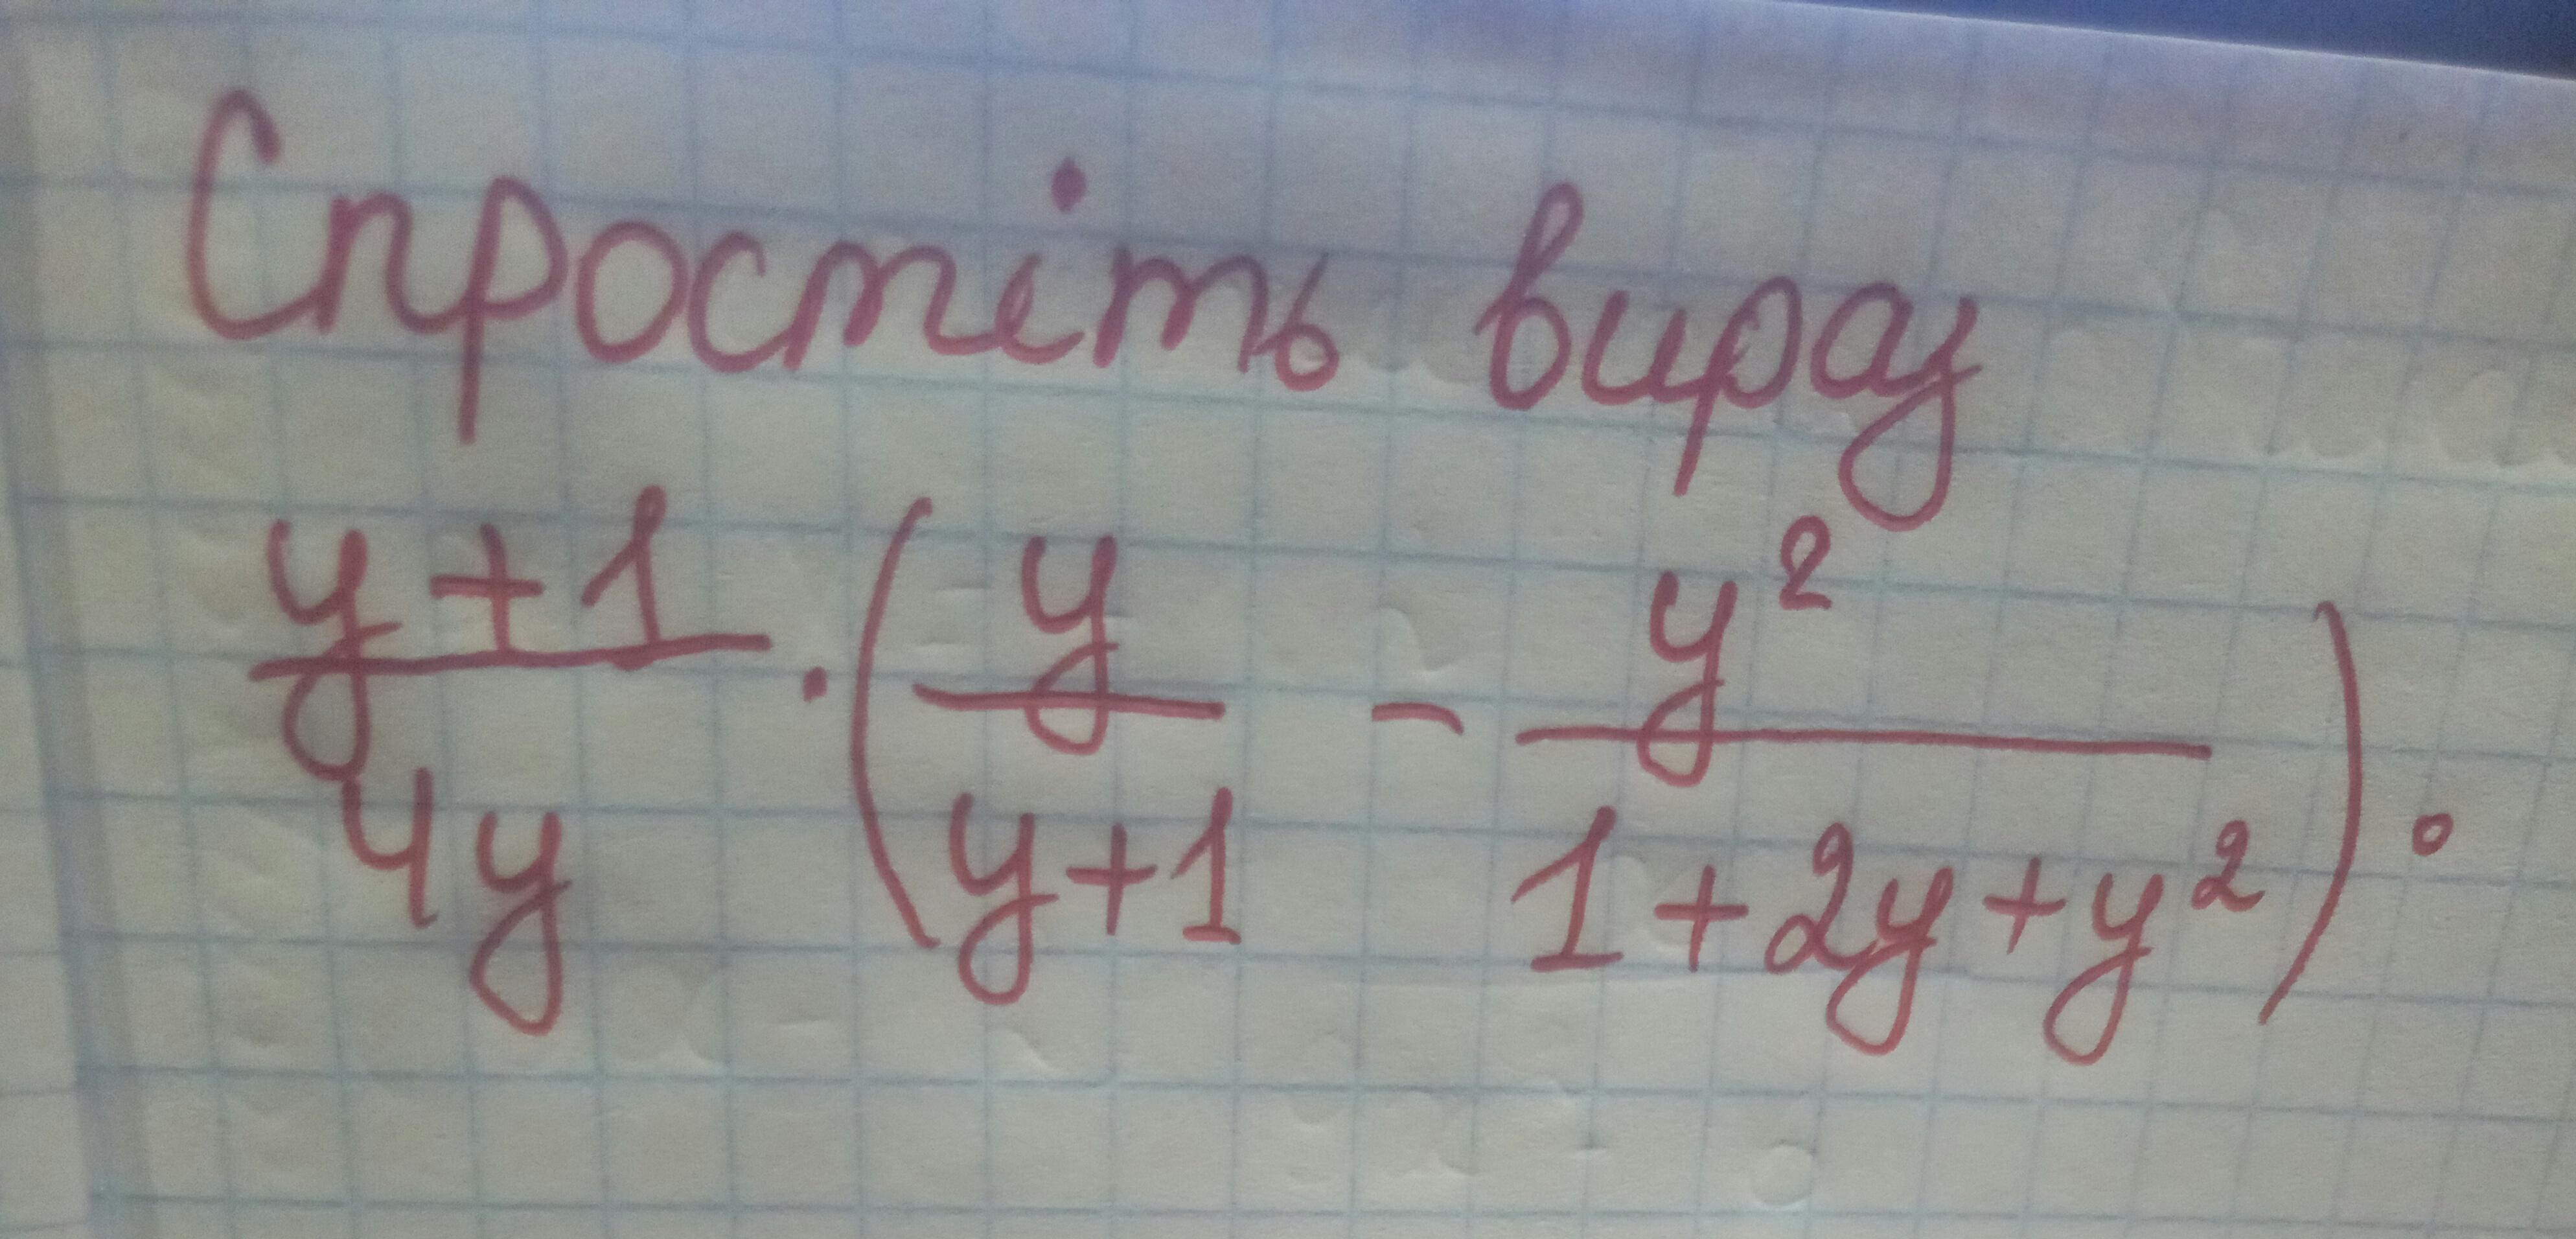 Спростіть вираз
\frac{y+1}{4y} \cdot \left( \frac{y}{y+1} - \frac{y^2}{1+2y+y^2} \right).